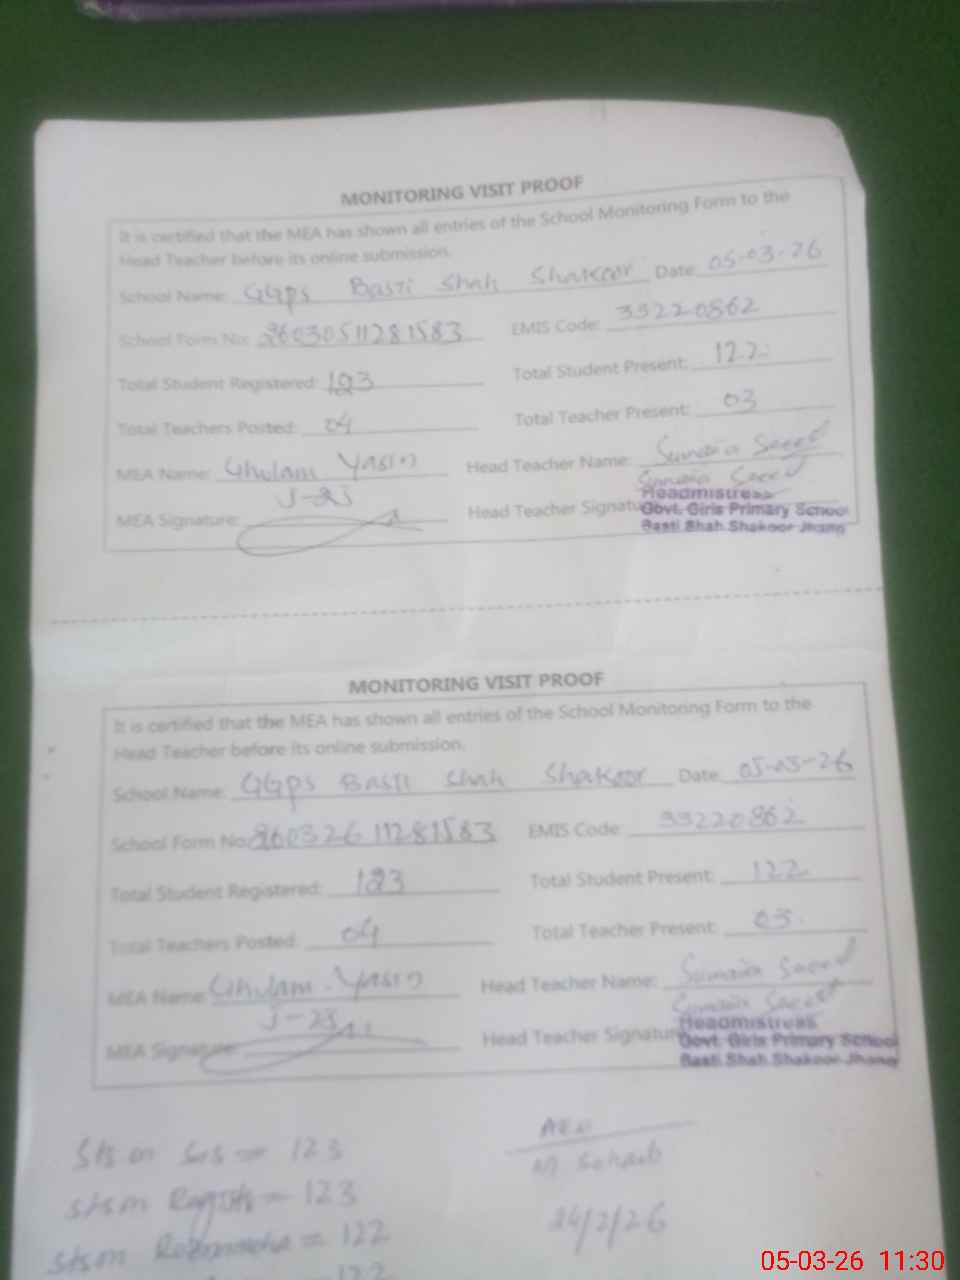 MONITORING VISIT PROOF
It is certified that the MEA has shown all entries of the School Monitoring Form to the
Head Teacher before its online submission.
School Name: GGPS Basti Shah Shakoor Date: 05-03-26
School Form No: 26030511281583 EMIS Code: 33220862
Total Student Registered: 123 Total Student Present: 122
Total Teachers Posted: 04 Total Teacher Present: 03
MEA Name: Ghulam Yasin Head Teacher Name: Sumaira Saeed
J-23 Sumaira Saeed
MEA Signature: Head Teacher Signature
Headmistress
Govt. Girls Primary School
Basti Shah Shakoor Jhang
MONITORING VISIT PROOF
It is certified that the MEA has shown all entries of the School Monitoring Form to the
Head Teacher before its online submission.
School Name: GGPS Basti Shah Shakoor Date: 05-03-26
School Form No: EMIS Code: 33220862
Total Student Registered: 123 Total Student Present: 122
Total Teachers Posted: 04 Total Teacher Present: 03
MEA Name: Ghulam Yasin Head Teacher Name: Sumaira Saeed
J-23 Sumaira Saeed
MEA Signature: Head Teacher Signature
Headmistress
Govt. Girls Primary School
Basti Shah Shakoor Jhang
Sts on Sis = 123
AEO
M Sohaib
stsm = 123
24/2/26
stsm = 122
122
05-03-26 11:30